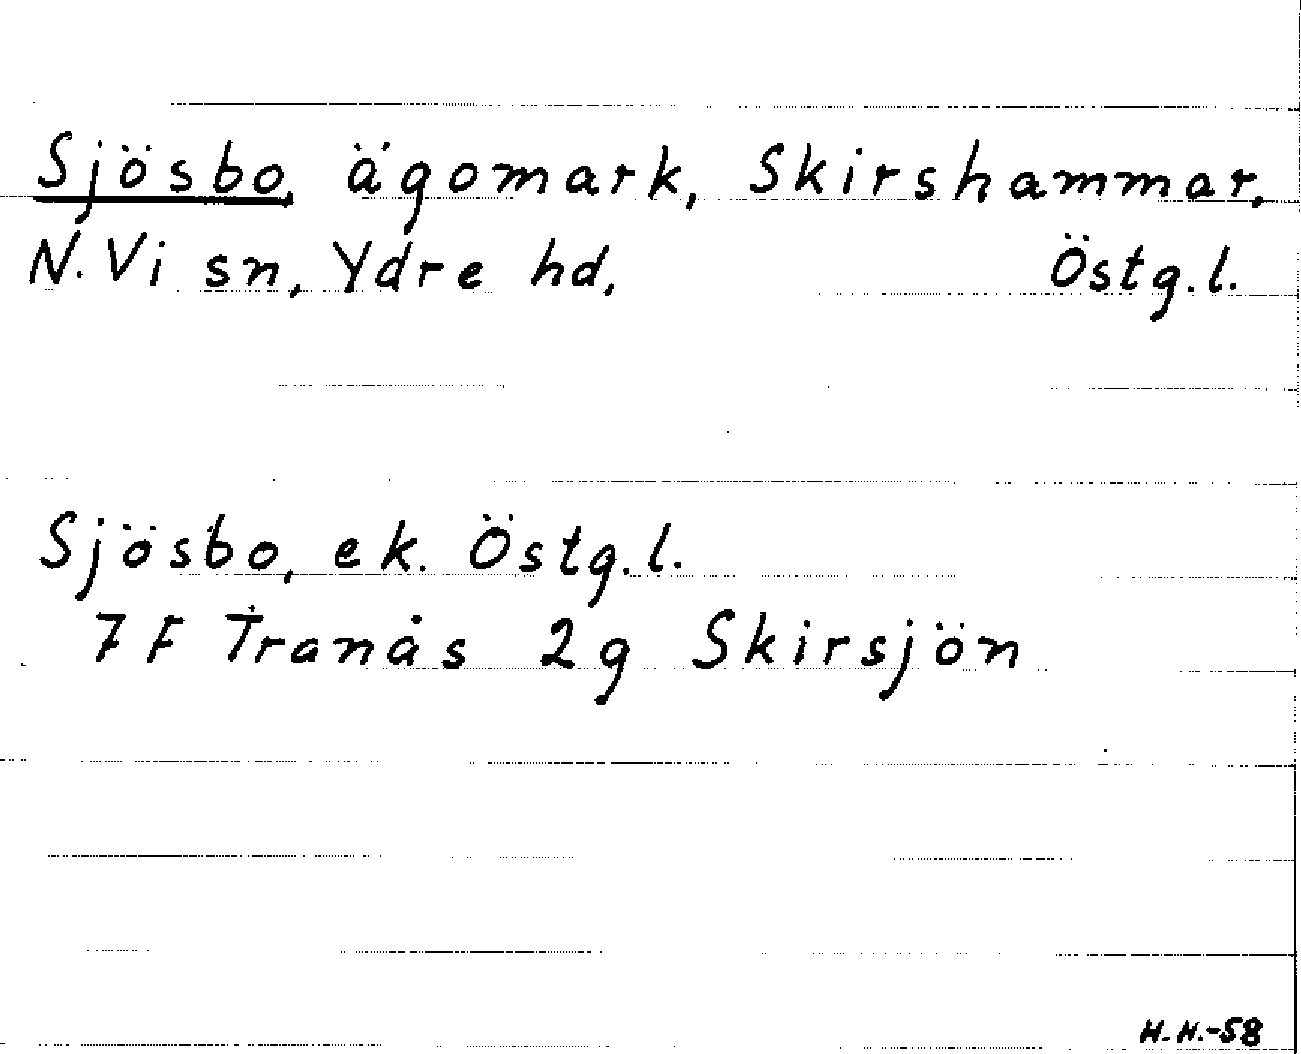 Sjösbo, ägomark, Skirshammar,
N. Vi sn, Ydre hd, Östg.l.
Sjösbo, ek. Östg.l.
7 F Tranås 2g Skirsjön
H.H.-58